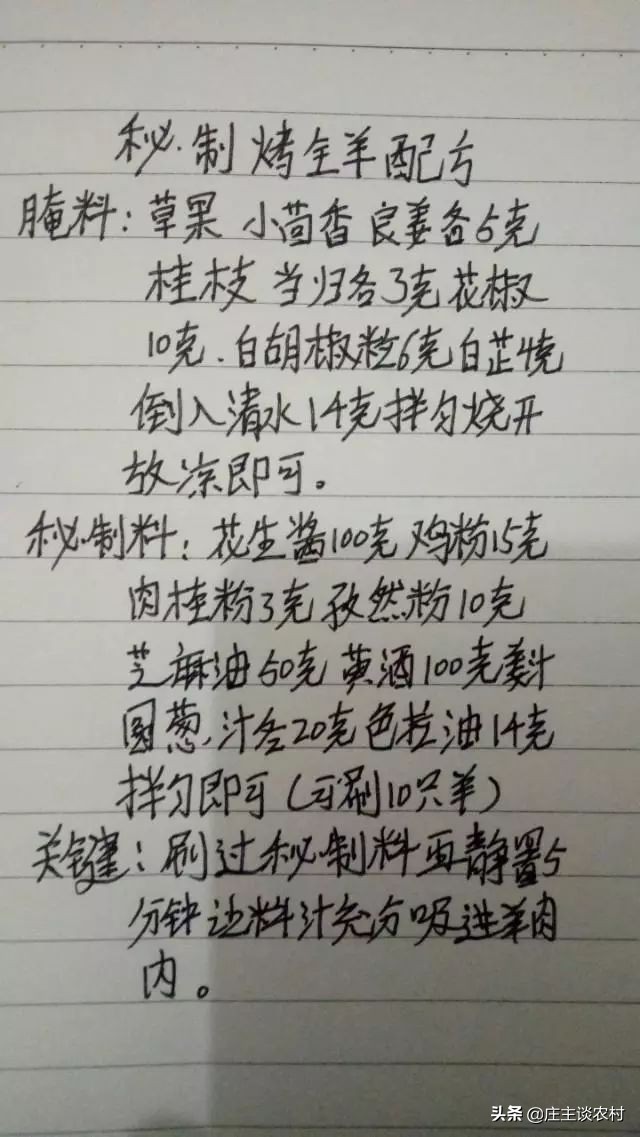 秘制烤全羊配方
腌料：草果 小茴香 良姜各5克
桂枝 当归各3克花椒
10克．白胡椒粒6克白芷4克
倒入清水14克拌匀烧开
放凉即可。
秘制料：花生酱100克鸡粉15克
肉桂粉3克孜然粉10克
芝麻油50克黄酒100克姜汁
圆葱汁各20克色拉油14克
拌匀即可（可刷10只羊）
关键：刷过秘制料再静置5
分钟让料汁充分吸进羊肉
内。
头条 @庄主谈农村